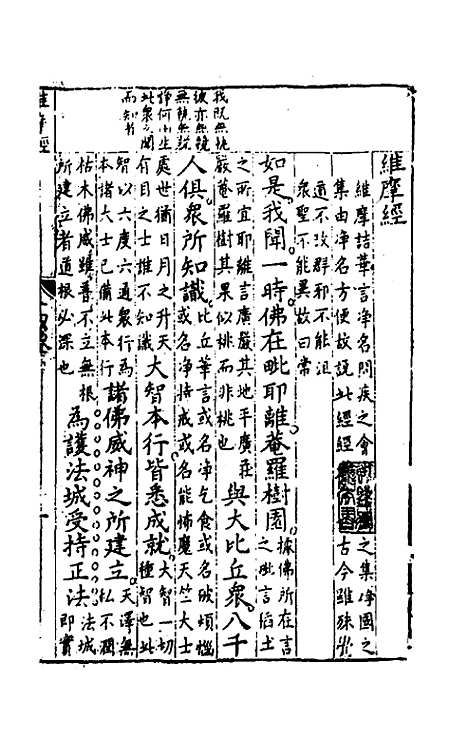 維摩經
維摩詰華言淨名問疾之會之集淨國之
集由淨名方便故說此經經古今雖殊
道不改群邪不能沮
衆聖不能異故曰常
如是我聞一時佛在毗耶離菴羅樹園據佛所在言
之毗言
之所宜耶離言廣嚴其地平廣莊
嚴菴羅樹其果似桃而非桃也與大比丘衆八千
人俱衆所知識比丘華言或名淨乞食或名破煩惱
或名淨持戒或名能怖魔天竺大士
處世猶日月之升天
有目之士誰不知識大智本行皆悉成就大智一切
種智也此
智以六度六通衆行為
本諸大士已備此本行諸佛威神之所建立天澤無
私不潤
枯木佛威雖普不立無根
所建立者道根必深也為護法城受持正法法城
即實
我既無說
彼亦無聽
無說無聽
而知者
維摩經